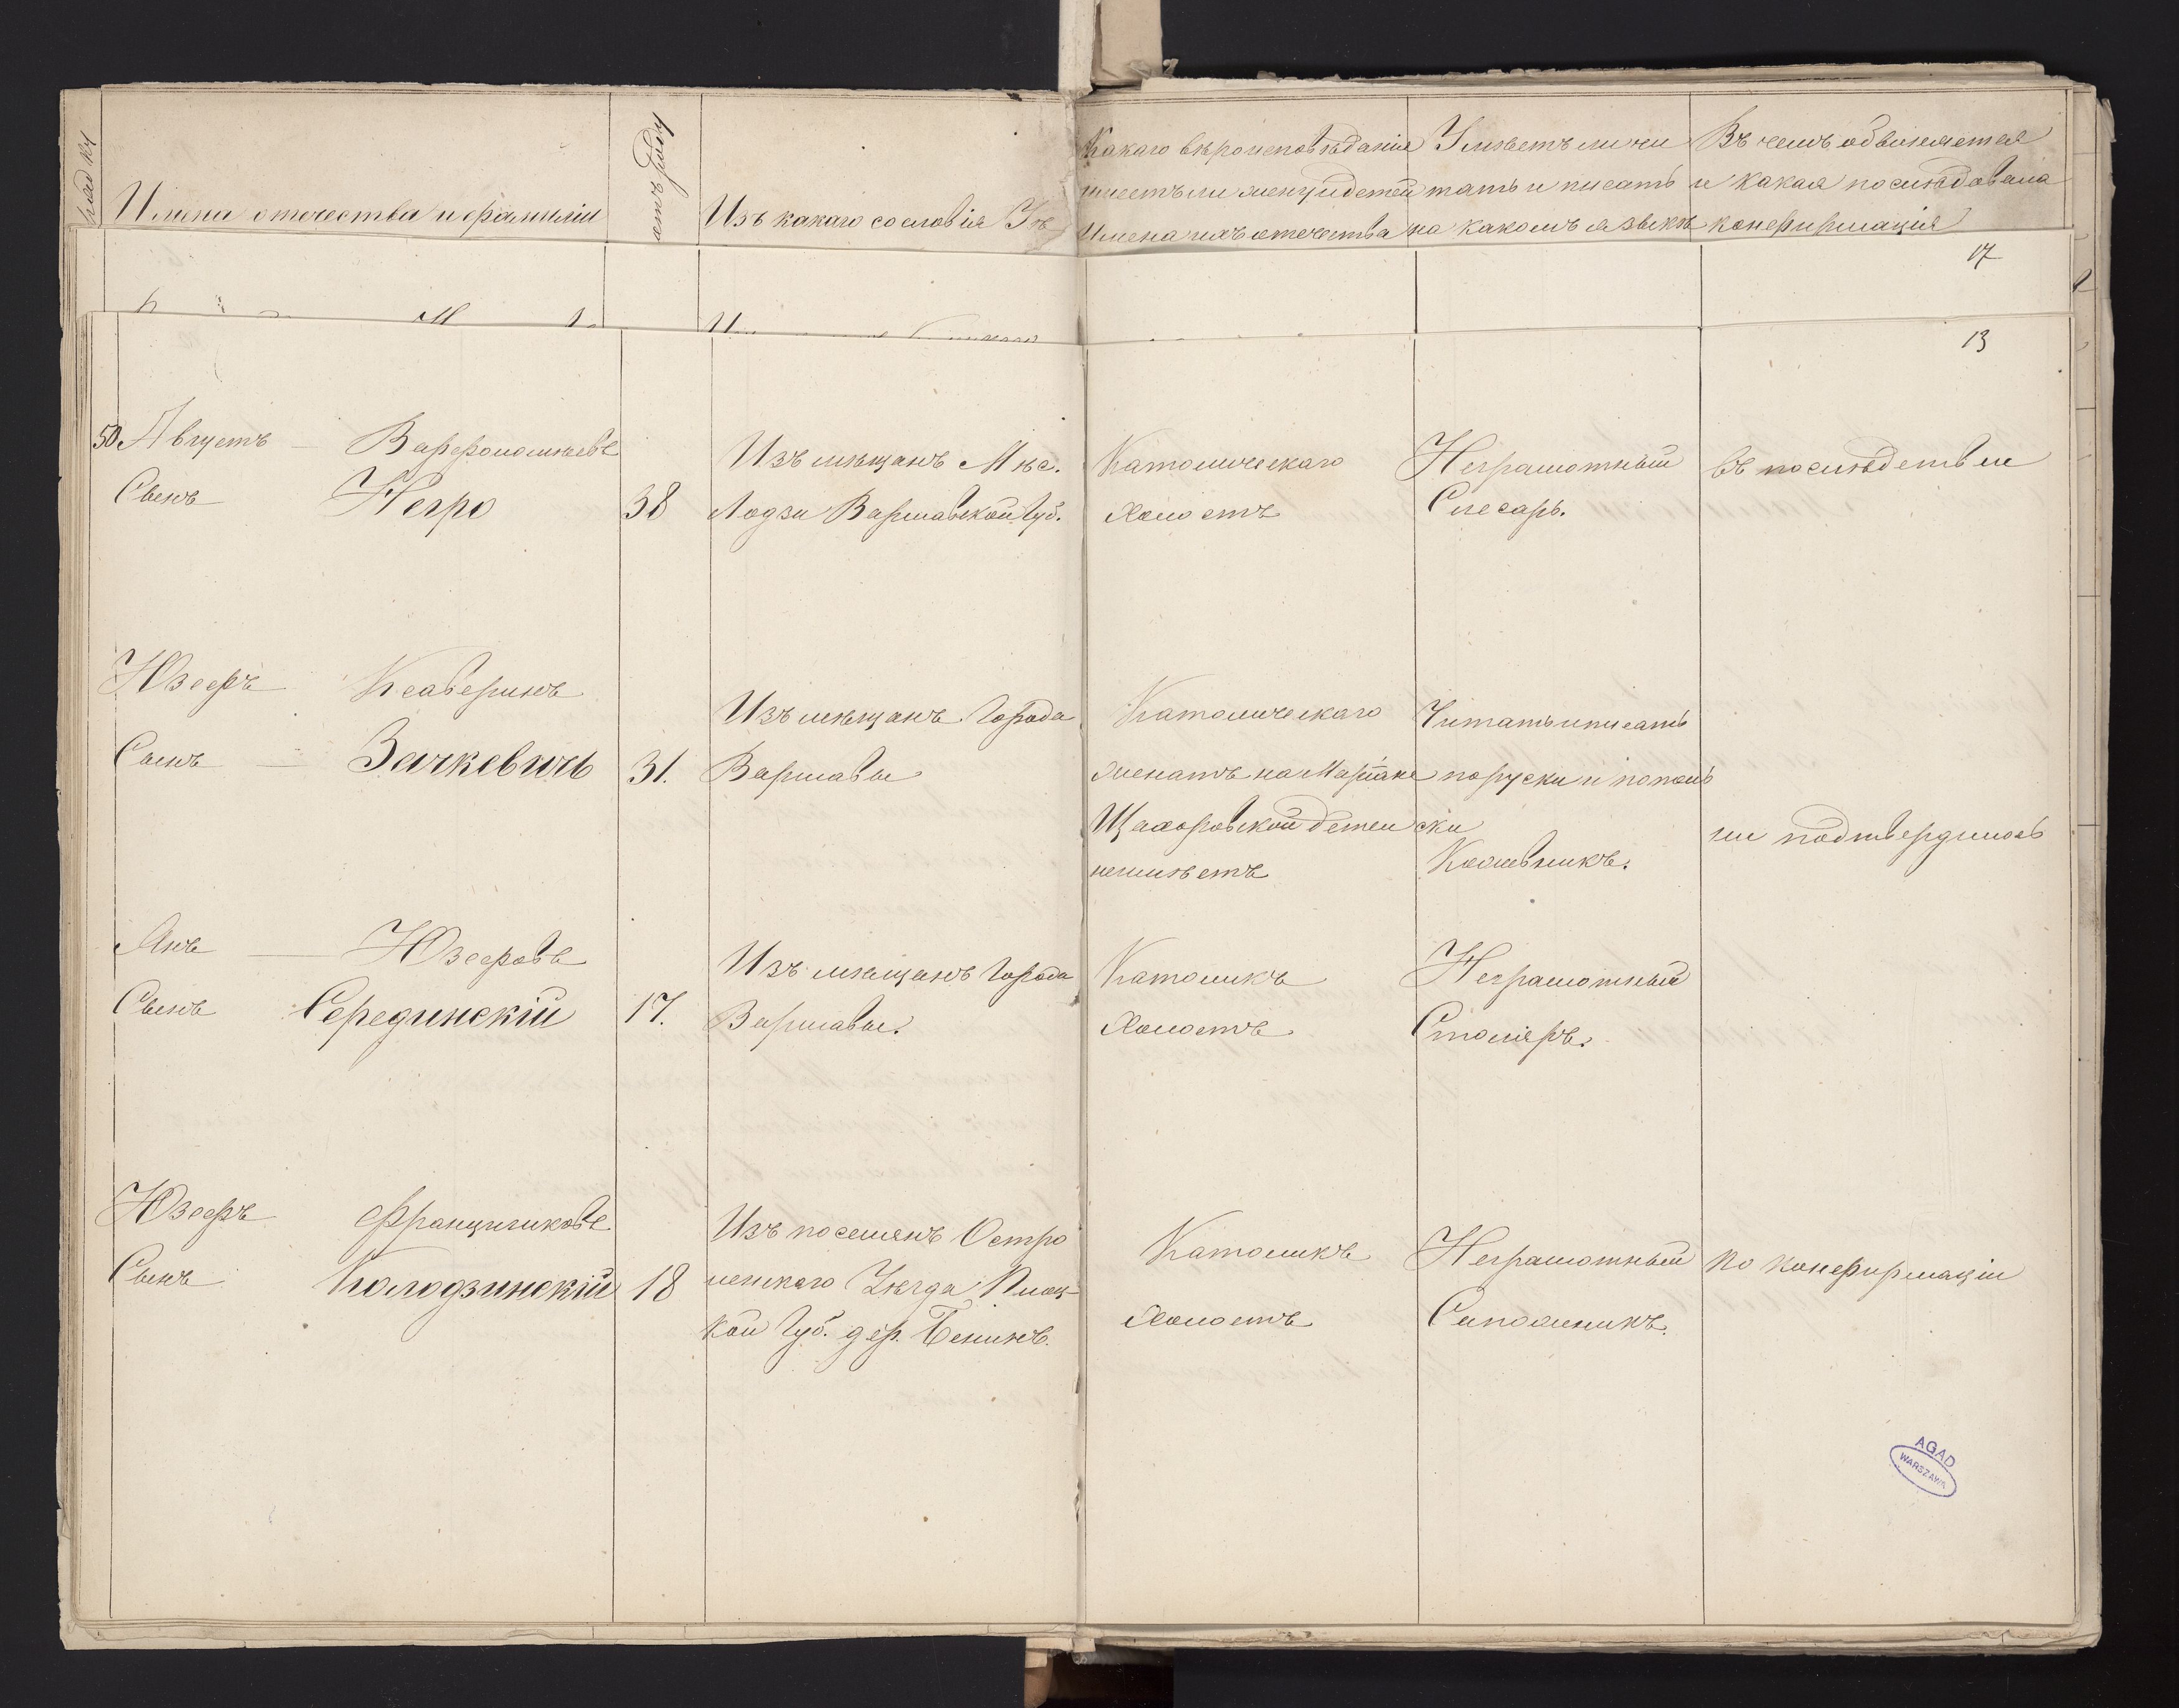 Имени отечества и фамилии
отъ роду
Изъ какаго сословія
Какаго вѣроисповѣданія
имеетъ ли жену и детей
имена ихъ отечества
Умѣетъ ли чи
тать и писать
на какомъ языкѣ
Въ чемъ обвиняется
и какая последовала
конфирмація
17
13
50 Августъ Варфоломѣевъ
Сынъ Негро 38
Изъ мѣщанъ Мѣс.
Лодзи Варшавской губ.
Католическаго
Холостъ
Неграмотный
Слесарь.
въ последствіи
Юзефъ Ксаверинъ
Сынъ Зачкевичь 31.
Изъ мѣщанъ Города
Варшавы
Католическаго
женатъ на Маріане
Щахоровской детей
неимѣетъ
Читать и писать
поруски и попол
ски
ни подтвердилось
Янъ Юзефовъ
Сынъ Серединскій 17.
Изъ мѣщанъ Города
Варшавы.
Католикъ
Холостъ
Неграмотный
Столяръ.
Юзефъ Францишковъ
Сынъ Колодзинскій 18
Изъ поселянъ Остро
ленскаго Уѣзда Плоц-
кой Губ. дер. Бенинъ.
Католикъ
Холостъ
Неграмотный
Сапожникъ.
по конфирмаціи
AGAD
WARSZAWA